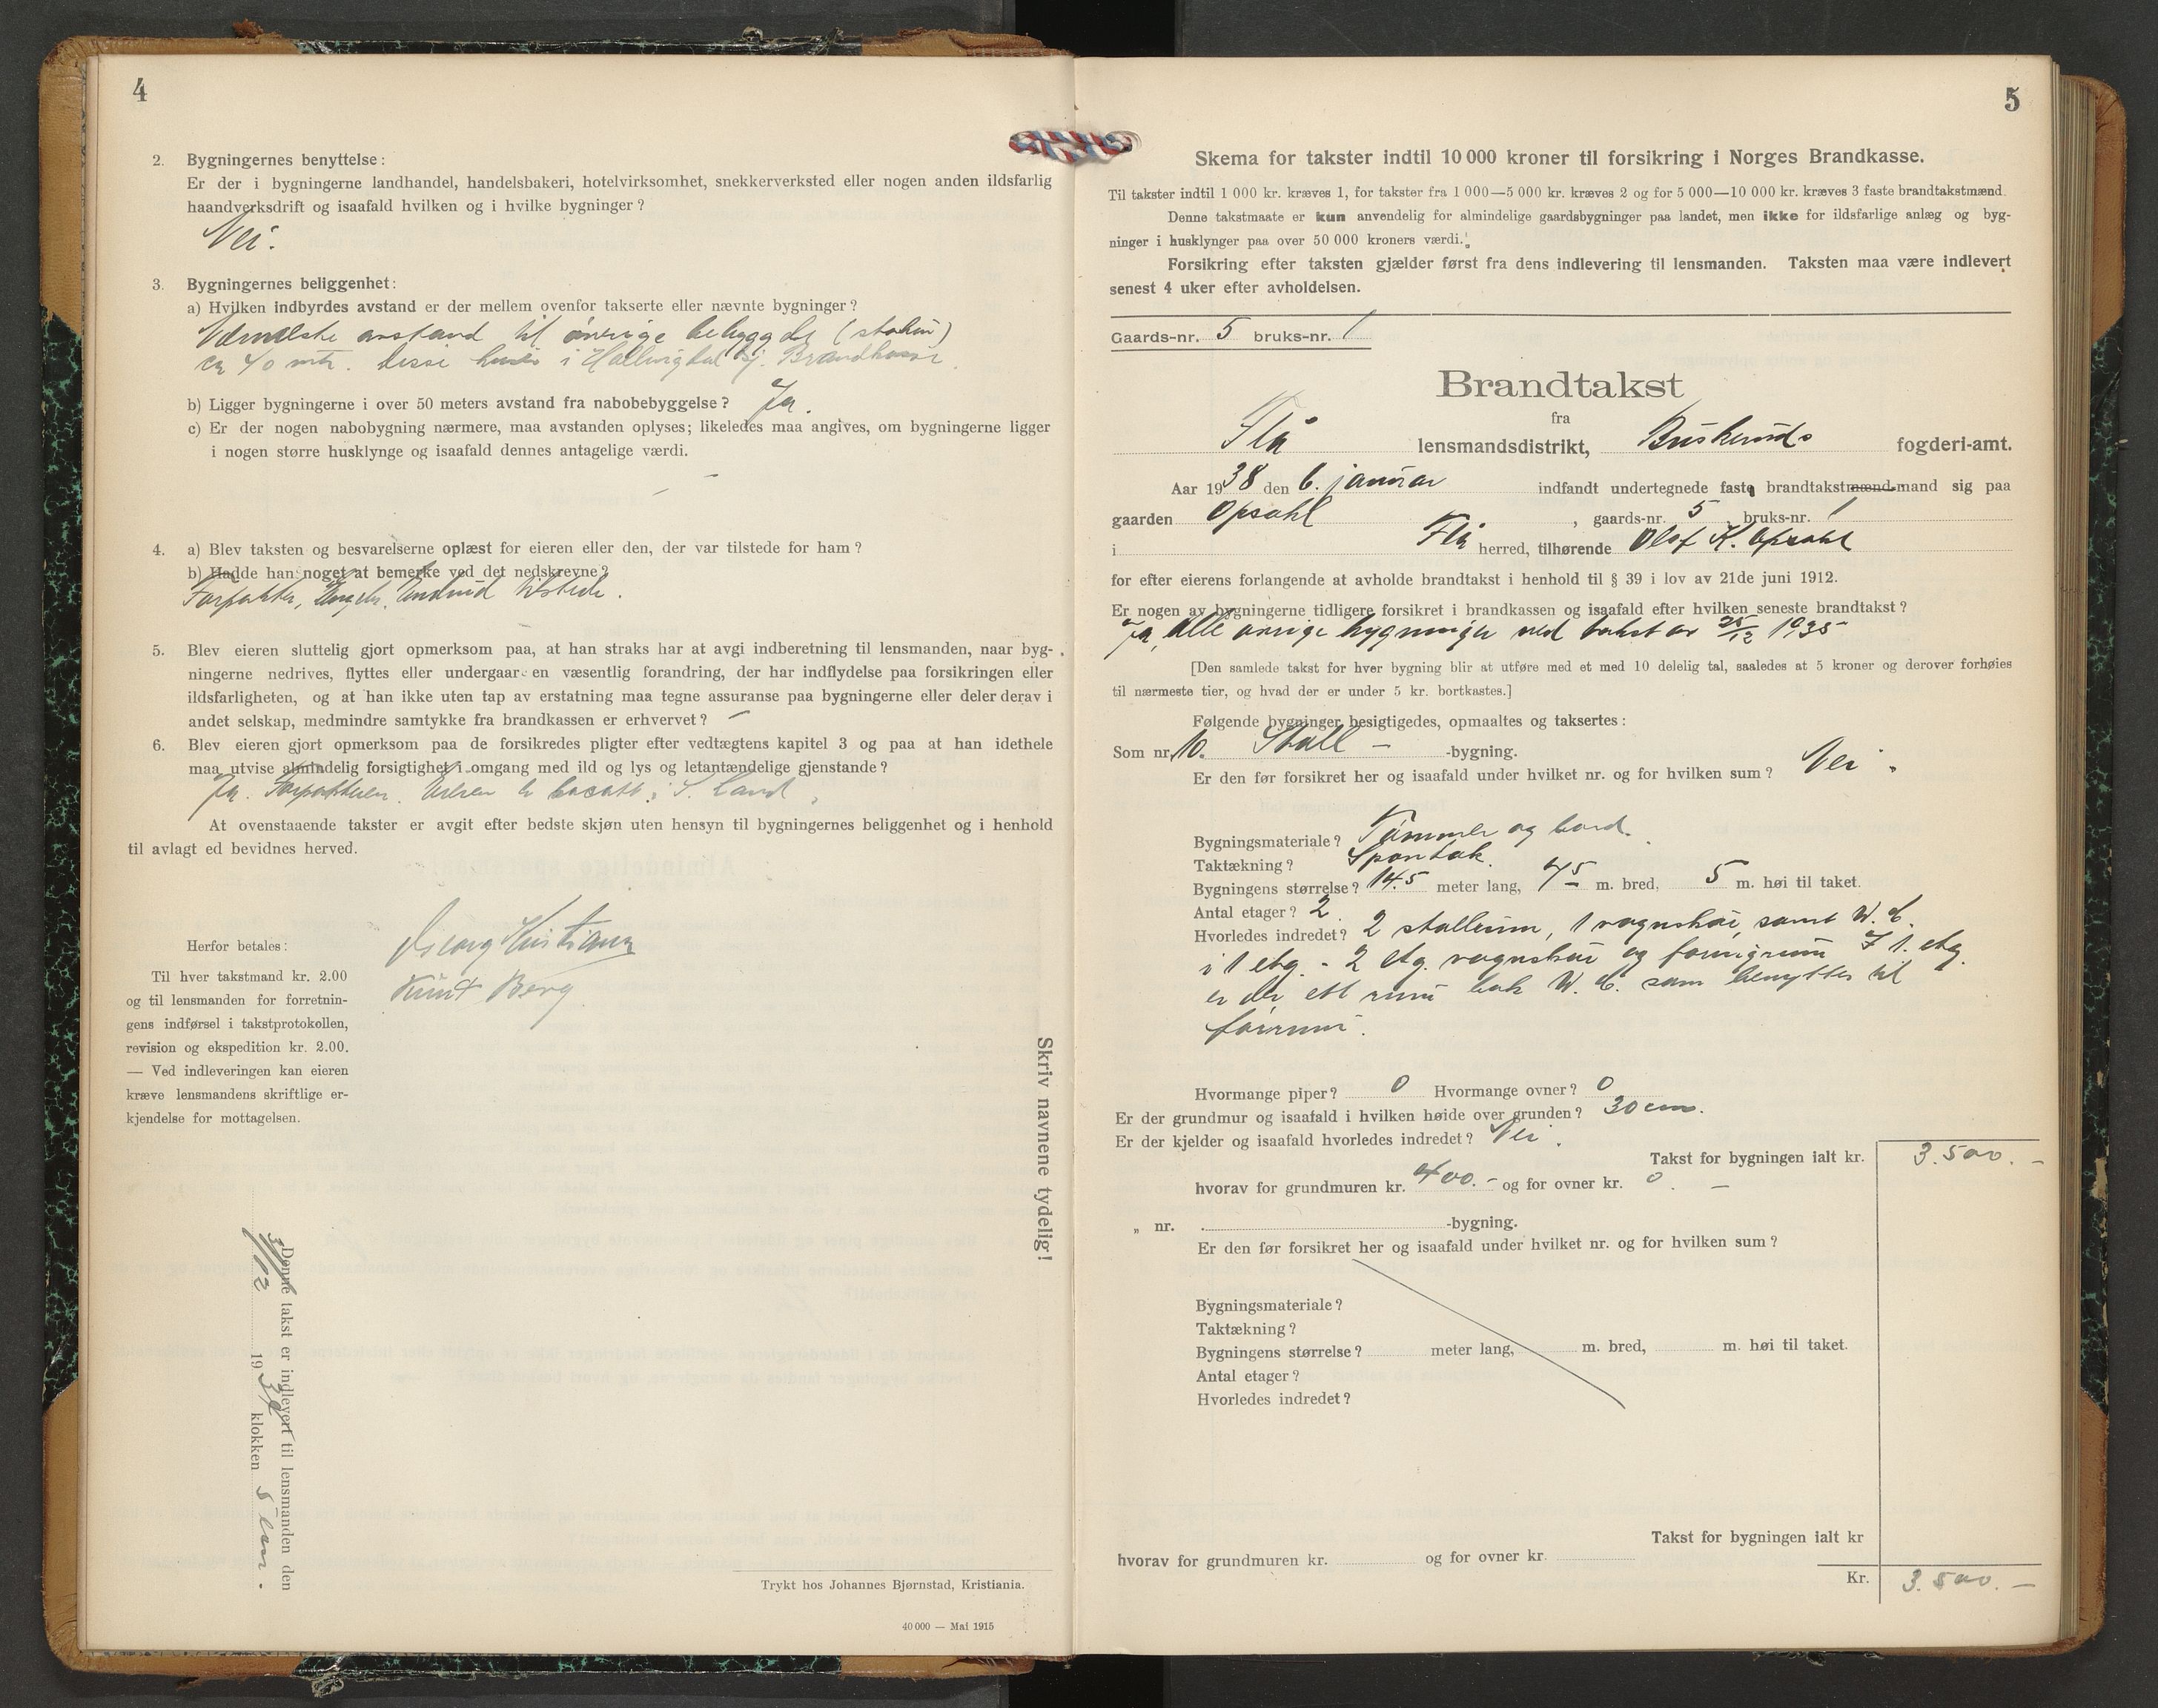 4
2. Bygningernes benyttelse:
Er der i bygningerne landhandel, handelsbakeri, hotelvirksomhet, snekkerverksted eller nogen anden ildsfarlig
haandverksdrift og isaafald hvilken og i hvilke bygninger?
Nei.
3. Bygningernes beliggenhet:
a) Hvilken indbyrdes avstand er der mellem ovenfor takserte eller nævnte bygninger?
avstand til øvrige
ca 40 mtr. Disse i Hallingdal
b) Ligger bygningerne i over 50 meters avstand fra nabobebyggelse? Ja.
c) Er der nogen nabobygning nærmere, maa avstanden oplyses; likeledes maa angives, om bygningerne ligger
i nogen større husklynge og isaafald dennes antagelige værdi.
— —
4. a) Blev taksten og besvarelserne oplæst for eieren eller den, der var tilstede for ham?
b) Hadde han noget at bemerke ved det nedskrevne?
Forpakter, tilstede.
5. Blev eieren sluttelig gjort opmerksom paa, at han straks har at avgi indberetning til lensmanden, naar byg-
ningerne nedrives, flyttes eller undergaar en væsentlig forandring, der har indflydelse paa forsikringen eller
ildsfarligheten, og at han ikke uten tap av erstatning maa tegne assuranse paa bygningerne eller deler derav i
andet selskap, medmindre samtykke fra brandkassen er erhvervet? —
6. Blev eieren gjort opmerksom paa de forsikredes pligter efter vedtægtens kapitel 3 og paa at han idethele
maa utvise almindelig forsigtighet i omgang med ild og lys og letantændelige gjenstande?
Ja. Forpakteren. Eieren er bosatt i S. Land.
At ovenstaaende takster er avgit efter bedste skjøn uten hensyn til bygningernes beliggenhet og i henhold
til avlagt ed bevidnes herved.
Georg Kristiansen
Knut Berg
Herfor betales:
Til hver takstmand kr. 2.00
og til lensmanden for forretnin-
gens indførsel i takstprotokollen,
revision og ekspedition kr. 2.00.
— Ved indleveringen kan eieren
kræve lensmandens skriftlige er-
kjendelse for mottagelsen.
Skriv navnene tydelig!
Denne takst er indlevert til lensmanden den
19 klokken 5 em.
Trykt hos Johannes Bjørnstad, Kristiania.
40 000 — Mai 1915
5
Skema for takster indtil 10 000 kroner til forsikring i Norges Brandkasse.
Til takster indtil 1 000 kr. kræves 1, for takster fra 1 000—5 000 kr. kræves 2 og for 5 000—10 000 kr. kræves 3 faste brandtakstmænd.
Denne takstmaate er kun anvendelig for almindelige gaardsbygninger paa landet, men ikke for ildsfarlige anlæg og byg-
ninger i husklynger paa over 50 000 kroners værdi.
Forsikring efter taksten gjælder først fra dens indlevering til lensmanden. Taksten maa være indlevert
senest 4 uker efter avholdelsen.
Gaards-nr. 5 bruks-nr. 1
Brandtakst
fra
Flå lensmandsdistrikt, Buskeruds fogderi-amt.
Aar 1938 den 6. januar indfandt undertegnede faste brandtakstmænd-mand sig paa
gaarden Opsahl, gaards-nr. 5 bruks-nr. 1
i Flå herred, tilhørende Olaf K. Opsahl
for efter eierens forlangende at avholde brandtakst i henhold til § 39 i lov av 21de juni 1912.
Er nogen av bygningerne tidligere forsikret i brandkassen og isaafald efter hvilken seneste brandtakst?
Ja, alle øvrige bygninger ved takst av 25/12 1935
[Den samlede takst for hver bygning blir at utføre med et med 10 delelig tal, saaledes at 5 kroner og derover forhøies
til nærmeste tier, og hvad der er under 5 kr. bortkastes.]
Følgende bygninger besigtigedes, opmaaltes og taksertes:
Som nr. 10. Stall — -bygning.
Er den før forsikret her og isaafald under hvilket nr. og for hvilken sum? Nei.
Bygningsmateriale? Tømmer og bord.
Taktækning? Spontak.
Bygningens størrelse? 14.5 meter lang, 7,5 m. bred, 5 m. høi til taket.
Antal etager? 2.
Hvorledes indredet? 2 stallrum, 1 vognskur, samt W.C.
i 1 etg. - 2 etg. vognskur og foringrum I 1. etg.
er der ett rum bak W.C. som benyttes til
forrum.
Hvormange piper? 0 Hvormange ovner? 0
Er der grundmur og isaafald i hvilken høide over grunden? 30 cm.
Er der kjelder og isaafald hvorledes indredet? Nei.
Takst for bygningen ialt kr. 3.500.—
hvorav for grundmuren kr. 400.- og for ovner kr. 0. —
„ nr. -bygning.
Er den før forsikret her og isaafald under hvilket nr. og for hvilken sum?
Bygningsmateriale?
Taktækning?
Bygningens størrelse? meter lang, m. bred, m. høi til taket.
Antal etager?
Hvorledes indredet?
Takst for bygningen ialt kr
hvorav for grundmuren kr. og for ovner kr.
Kr. 3.500.—